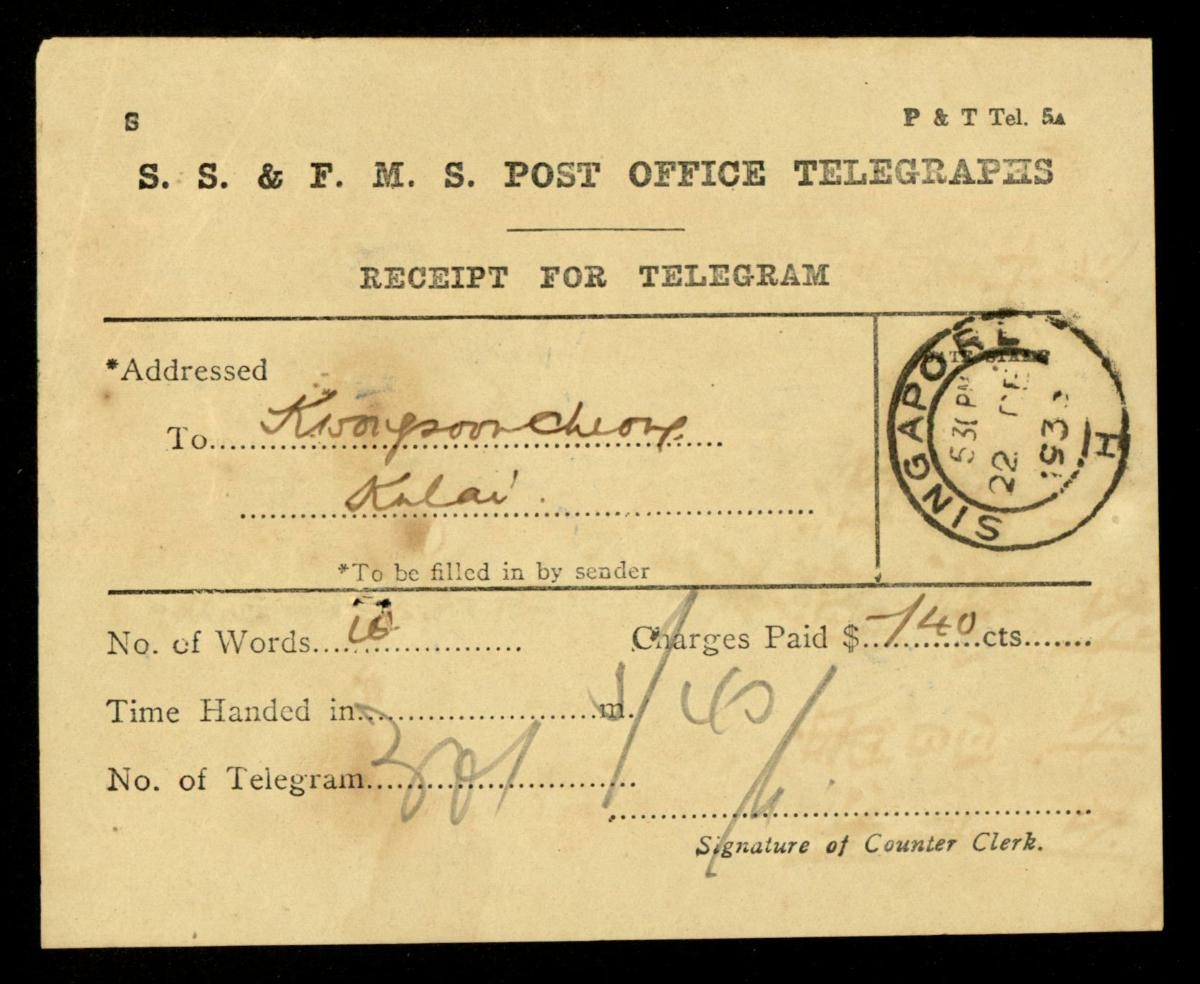 S
P & T Tel. 5A
S. S. & F. M. S. POST OFFICE TELEGRAPHS
RECEIPT FOR TELEGRAM
*Addressed
To Kwongsooncheong
Kulai
*To be filled in by sender
DATE STAMP
SINGAPORE
H
5 31 PM
22 DE
193
No. of Words
Charges Paid $ -/40 cts
Time Handed in m.
/40/
No. of Telegram
Signature of Counter Clerk.